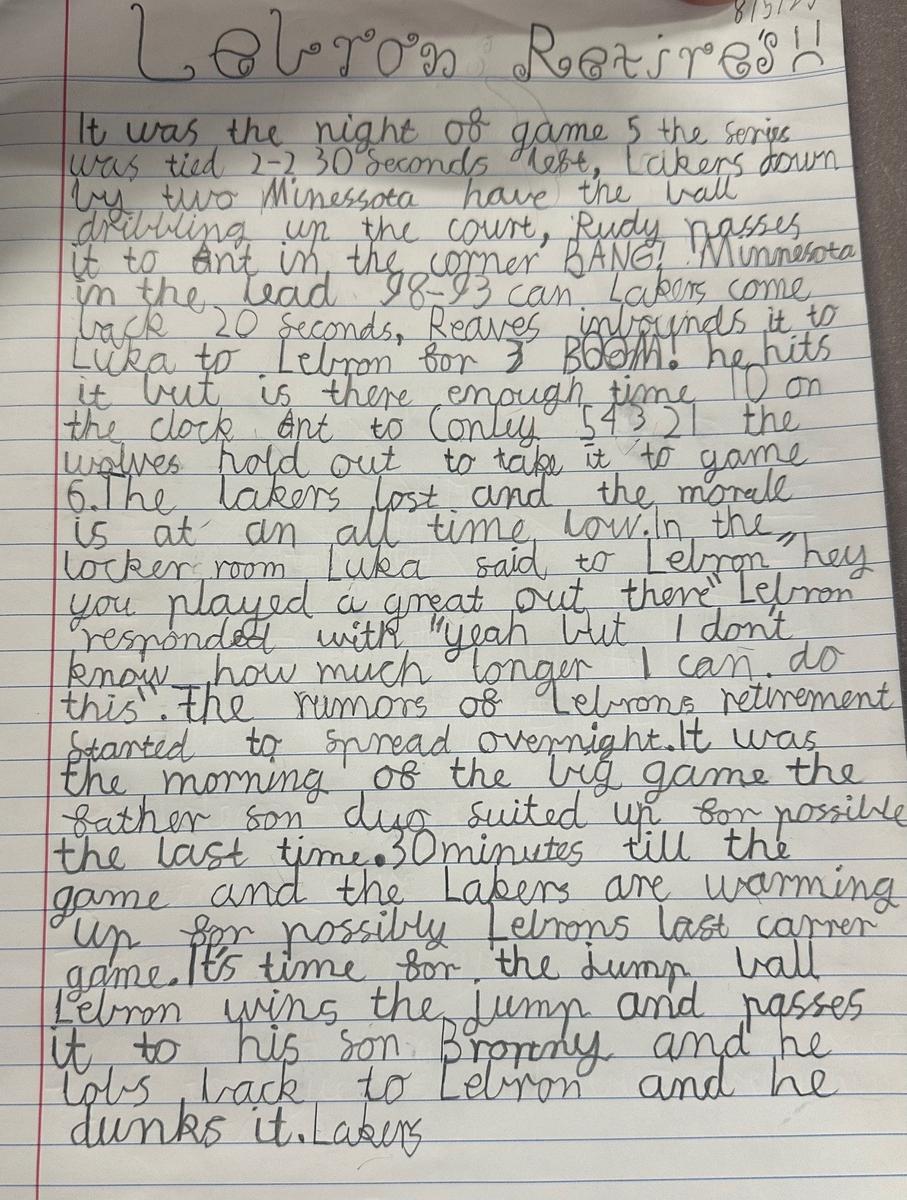 8/5/2
Lebron Retires!!
It was the night of game 5 the series
was tied 2-2 30 seconds left, Lakers down
by two Minessota have the ball
dribbling up the court, Rudy passes
it to Ant in the corner BANG! Minnesota
in the lead 98-93 can Lakers come
back 20 seconds, Reaves inbounds it to
Luka to Lebron for 3 BOOM! he hits
it but is there enough time 10 on
the clock Ant to Conley 5 4 3 2 1 the
wolves hold out to take it to game
6. The lakers lost and the morale
is at an all time low. In the
locker room Luka said to Lebron "hey
you played a great out there" Lebron
responded with "yeah but I don't
know how much longer I can do
this". The rumors of Lebrons retirement
started to spread overnight. It was
the morning of the big game the
father son duo suited up for possible
the last time. 30 minutes till the
game and the Lakers are warming
up for possibly Lebrons last carrer
game. It's time for the jump ball
Lebron wins the jump and passes
it to his son Bronny and he
lobs back to Lebron and he
dunks it. Lakers